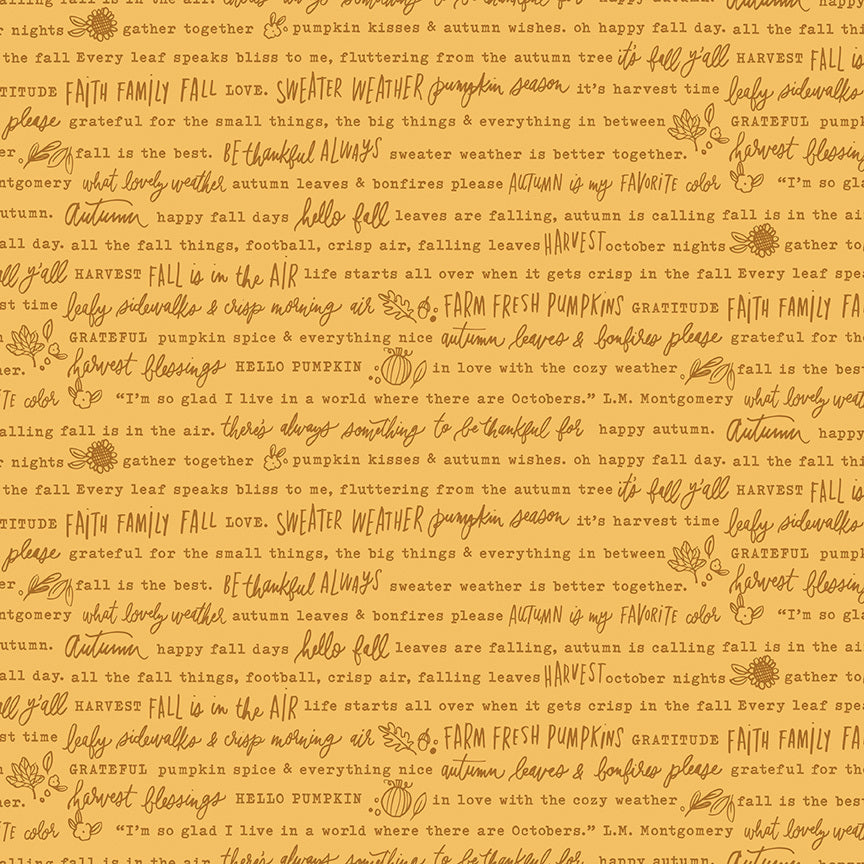 alling fall is in the air. there's always something to be thankful for happy autumn. Autumn happy
r nights gather together pumpkin kisses & autumn wishes. oh happy fall day. all the fall thi
the fall Every leaf speaks bliss to me, fluttering from the autumn tree it's fall y'all HARVEST FALL is
TITUDE FAITH FAMILY FALL LOVE. SWEATER WEATHER pumpkin season it's harvest time leafy sidewalks
please grateful for the small things, the big things & everything in between GRATEFUL pumpk
er. fall is the best. BE thankful ALWAYS sweater weather is better together. harvest blessing
ntgomery what lovely weather autumn leaves & bonfires please AUTUMN is my FAVORITE color "I'm so gla
utumn. Autumn happy fall days hello fall leaves are falling, autumn is calling fall is in the air
all day. all the fall things, football, crisp air, falling leaves HARVEST october nights gather to
all y'all HARVEST FALL is in the AIR life starts all over when it gets crisp in the fall Every leaf spea
st time leafy sidewalks & crisp morning air FARM FRESH PUMPKINS GRATITUDE FAITH FAMILY FA
GRATEFUL pumpkin spice & everything nice autumn leaves & bonfires please grateful for the
her. harvest blessings HELLO PUMPKIN in love with the cozy weather fall is the best
ITE color "I'm so glad I live in a world where there are Octobers." L.M. Montgomery what lovely weat
alling fall is in the air. there's always something to be thankful for happy autumn. Autumn happy
r nights gather together pumpkin kisses & autumn wishes. oh happy fall day. all the fall thi
the fall Every leaf speaks bliss to me, fluttering from the autumn tree it's fall y'all HARVEST FALL is
TITUDE FAITH FAMILY FALL LOVE. SWEATER WEATHER pumpkin season it's harvest time leafy sidewalks
please grateful for the small things, the big things & everything in between GRATEFUL pumpk
er. fall is the best. BE thankful ALWAYS sweater weather is better together. harvest blessing
ntgomery what lovely weather autumn leaves & bonfires please AUTUMN is my FAVORITE color "I'm so gla
utumn. Autumn happy fall days hello fall leaves are falling, autumn is calling fall is in the air
all day. all the fall things, football, crisp air, falling leaves HARVEST october nights gather to
all y'all HARVEST FALL is in the AIR life starts all over when it gets crisp in the fall Every leaf spea
st time leafy sidewalks & crisp morning air FARM FRESH PUMPKINS GRATITUDE FAITH FAMILY FA
GRATEFUL pumpkin spice & everything nice autumn leaves & bonfires please grateful for the
her. harvest blessings HELLO PUMPKIN in love with the cozy weather fall is the best
ITE color "I'm so glad I live in a world where there are Octobers." L.M. Montgomery what lovely weat
alling fall is in the air. there's always something to be thankful for happy autumn. Autumn happy